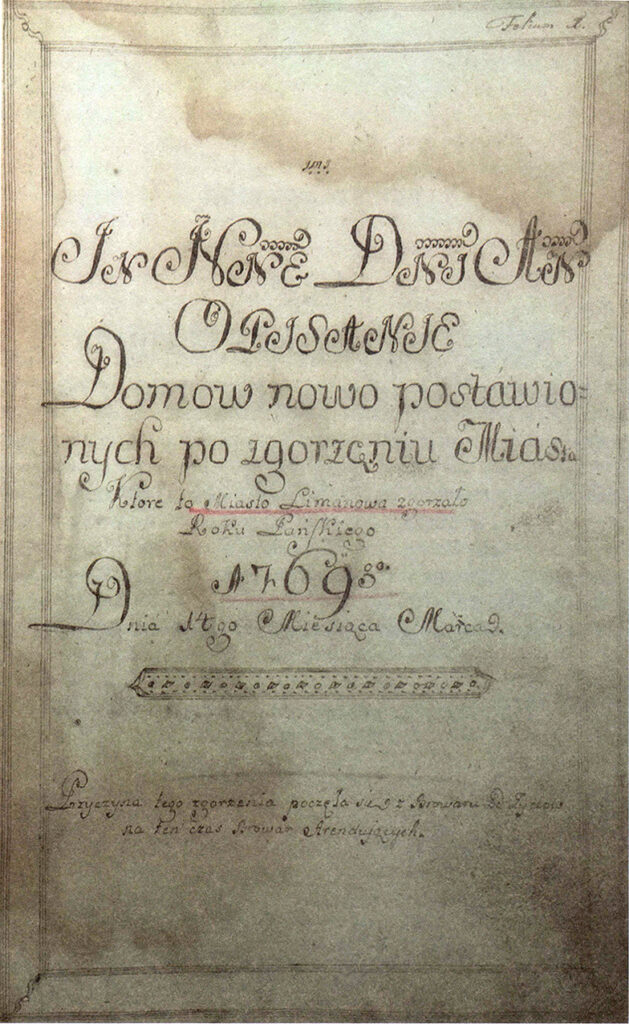 Folium 1.
JMJ
IN NNE DNI AN
OPISANIE
Domow nowo postáwio=
nych po zgorzęniu Miásta
Ktore to Miasto Limanowa zgorzało
Roku Páńskiego
1769go.
Dniá 14go Miesiąca Marca.
Przyczyna tego zgorzenia poczęła się z Browaru od Zydow
na ten czas Browar Arendujących.